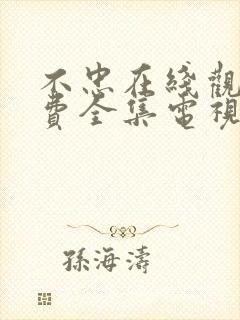 不忠在綫觀
費全集電視
孫海濤